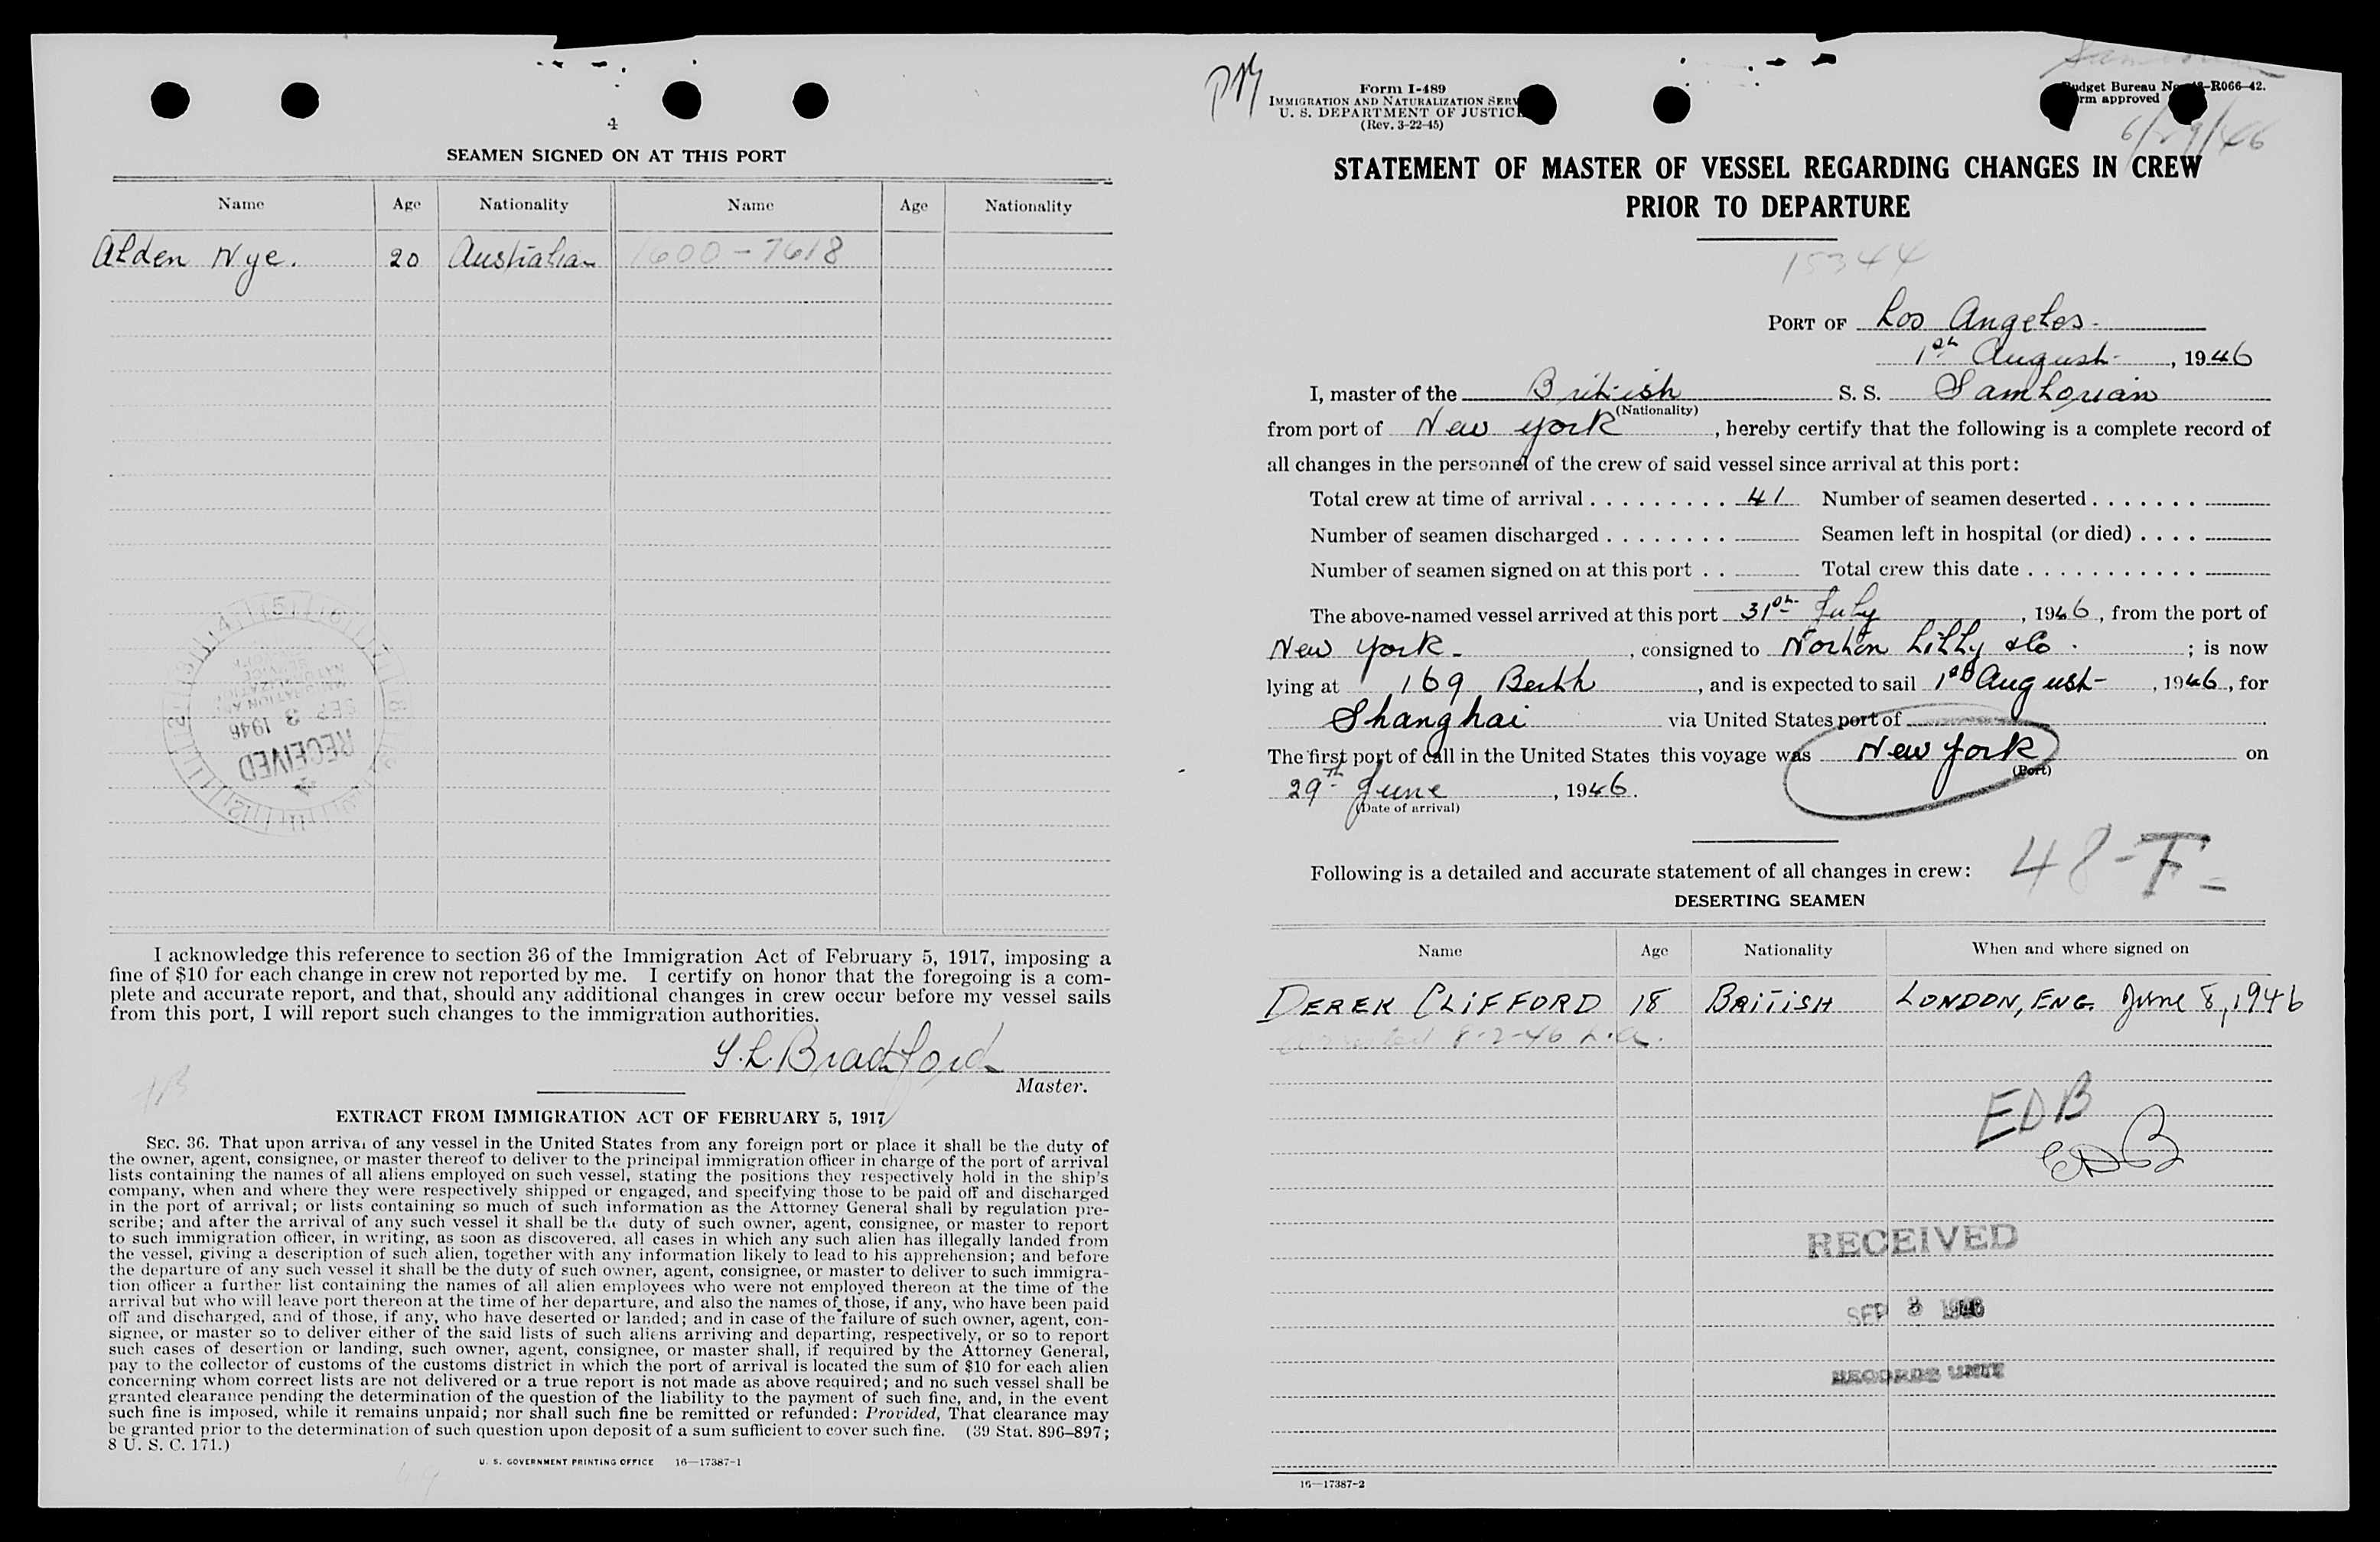 4
SEAMEN SIGNED ON AT THIS PORT
Name Age Nationality Name Age Nationality
Alden Nye. 20 Australian 1600-7618
RECEIVED
SEP 3 1946
I acknowledge this reference to section 36 of the Immigration Act of February 5, 1917, imposing a
fine of $10 for each change in crew not reported by me. I certify on honor that the foregoing is a com-
plete and accurate report, and that, should any additional changes in crew occur before my vessel sails
from this port, I will report such changes to the immigration authorities.
Bradford
Master.
EXTRACT FROM IMMIGRATION ACT OF FEBRUARY 5, 1917
SEC. 36. That upon arrival of any vessel in the United States from any foreign port or place it shall be the duty of
the owner, agent, consignee, or master thereof to deliver to the principal immigration officer in charge of the port of arrival
lists containing the names of all aliens employed on such vessel, stating the positions they respectively hold in the ship's
company, when and where they were respectively shipped or engaged, and specifying those to be paid off and discharged
in the port of arrival; or lists containing so much of such information as the Attorney General shall by regulation pre-
scribe; and after the arrival of any such vessel it shall be the duty of such owner, agent, consignee, or master to report
to such immigration officer, in writing, as soon as discovered, all cases in which any such alien has illegally landed from
the vessel, giving a description of such alien, together with any information likely to lead to his apprehension; and before
the departure of any such vessel it shall be the duty of such owner, agent, consignee, or master to deliver to such immigra-
tion officer a further list containing the names of all alien employees who were not employed thereon at the time of the
arrival but who will leave port thereon at the time of her departure, and also the names of those, if any, who have been paid
off and discharged, and of those, if any, who have deserted or landed; and in case of the failure of such owner, agent, con-
signee, or master so to deliver either of the said lists of such aliens arriving and departing, respectively, or so to report
such cases of desertion or landing, such owner, agent, consignee, or master shall, if required by the Attorney General,
pay to the collector of customs of the customs district in which the port of arrival is located the sum of $10 for each alien
concerning whom correct lists are not delivered or a true report is not made as above required; and no such vessel shall be
granted clearance pending the determination of the question of the liability to the payment of such fine, and, in the event
such fine is imposed, while it remains unpaid; nor shall such fine be remitted or refunded: Provided, That clearance may
be granted prior to the determination of such question upon deposit of a sum sufficient to cover such fine. (39 Stat. 896-897;
8 U. S. C. 171.)
U. S. GOVERNMENT PRINTING OFFICE 16—17387-1
Form I-489
IMMIGRATION AND NATURALIZATION SERV
U. S. DEPARTMENT OF JUSTIC
(Rev. 3-22-45)
Budget Bureau No. -R066-42.
rm approved
6/29/46
STATEMENT OF MASTER OF VESSEL REGARDING CHANGES IN CREW
PRIOR TO DEPARTURE
15344
PORT OF Los Angeles.
1st August, 1946
I, master of the British S. S. Samhorian
(Nationality)
from port of New York, hereby certify that the following is a complete record of
all changes in the personnel of the crew of said vessel since arrival at this port:
Total crew at time of arrival . . . . . . . . . . 41 Number of seamen deserted . . . . . . .
Number of seamen discharged . . . . . . . . Seamen left in hospital (or died) . . . .
Number of seamen signed on at this port . . Total crew this date . . . . . . . . . . . .
The above-named vessel arrived at this port 31st July, 1946, from the port of
New York, consigned to Norton Lilly & Co.; is now
lying at 169 Berth, and is expected to sail 1st August, 1946, for
Shanghai via United States port of
The first port of call in the United States this voyage was New York on
(Port)
29th June, 1946.
(Date of arrival)
48-F
Following is a detailed and accurate statement of all changes in crew:
DESERTING SEAMEN
Name Age Nationality When and where signed on
DEREK CLIFFORD 18 BRITISH LONDON, ENG. June 8, 1946
8-2-46 L.A.
EDB
EDB
RECEIVED
SEP 3 1946
RECORDS UNIT
16—17387-2